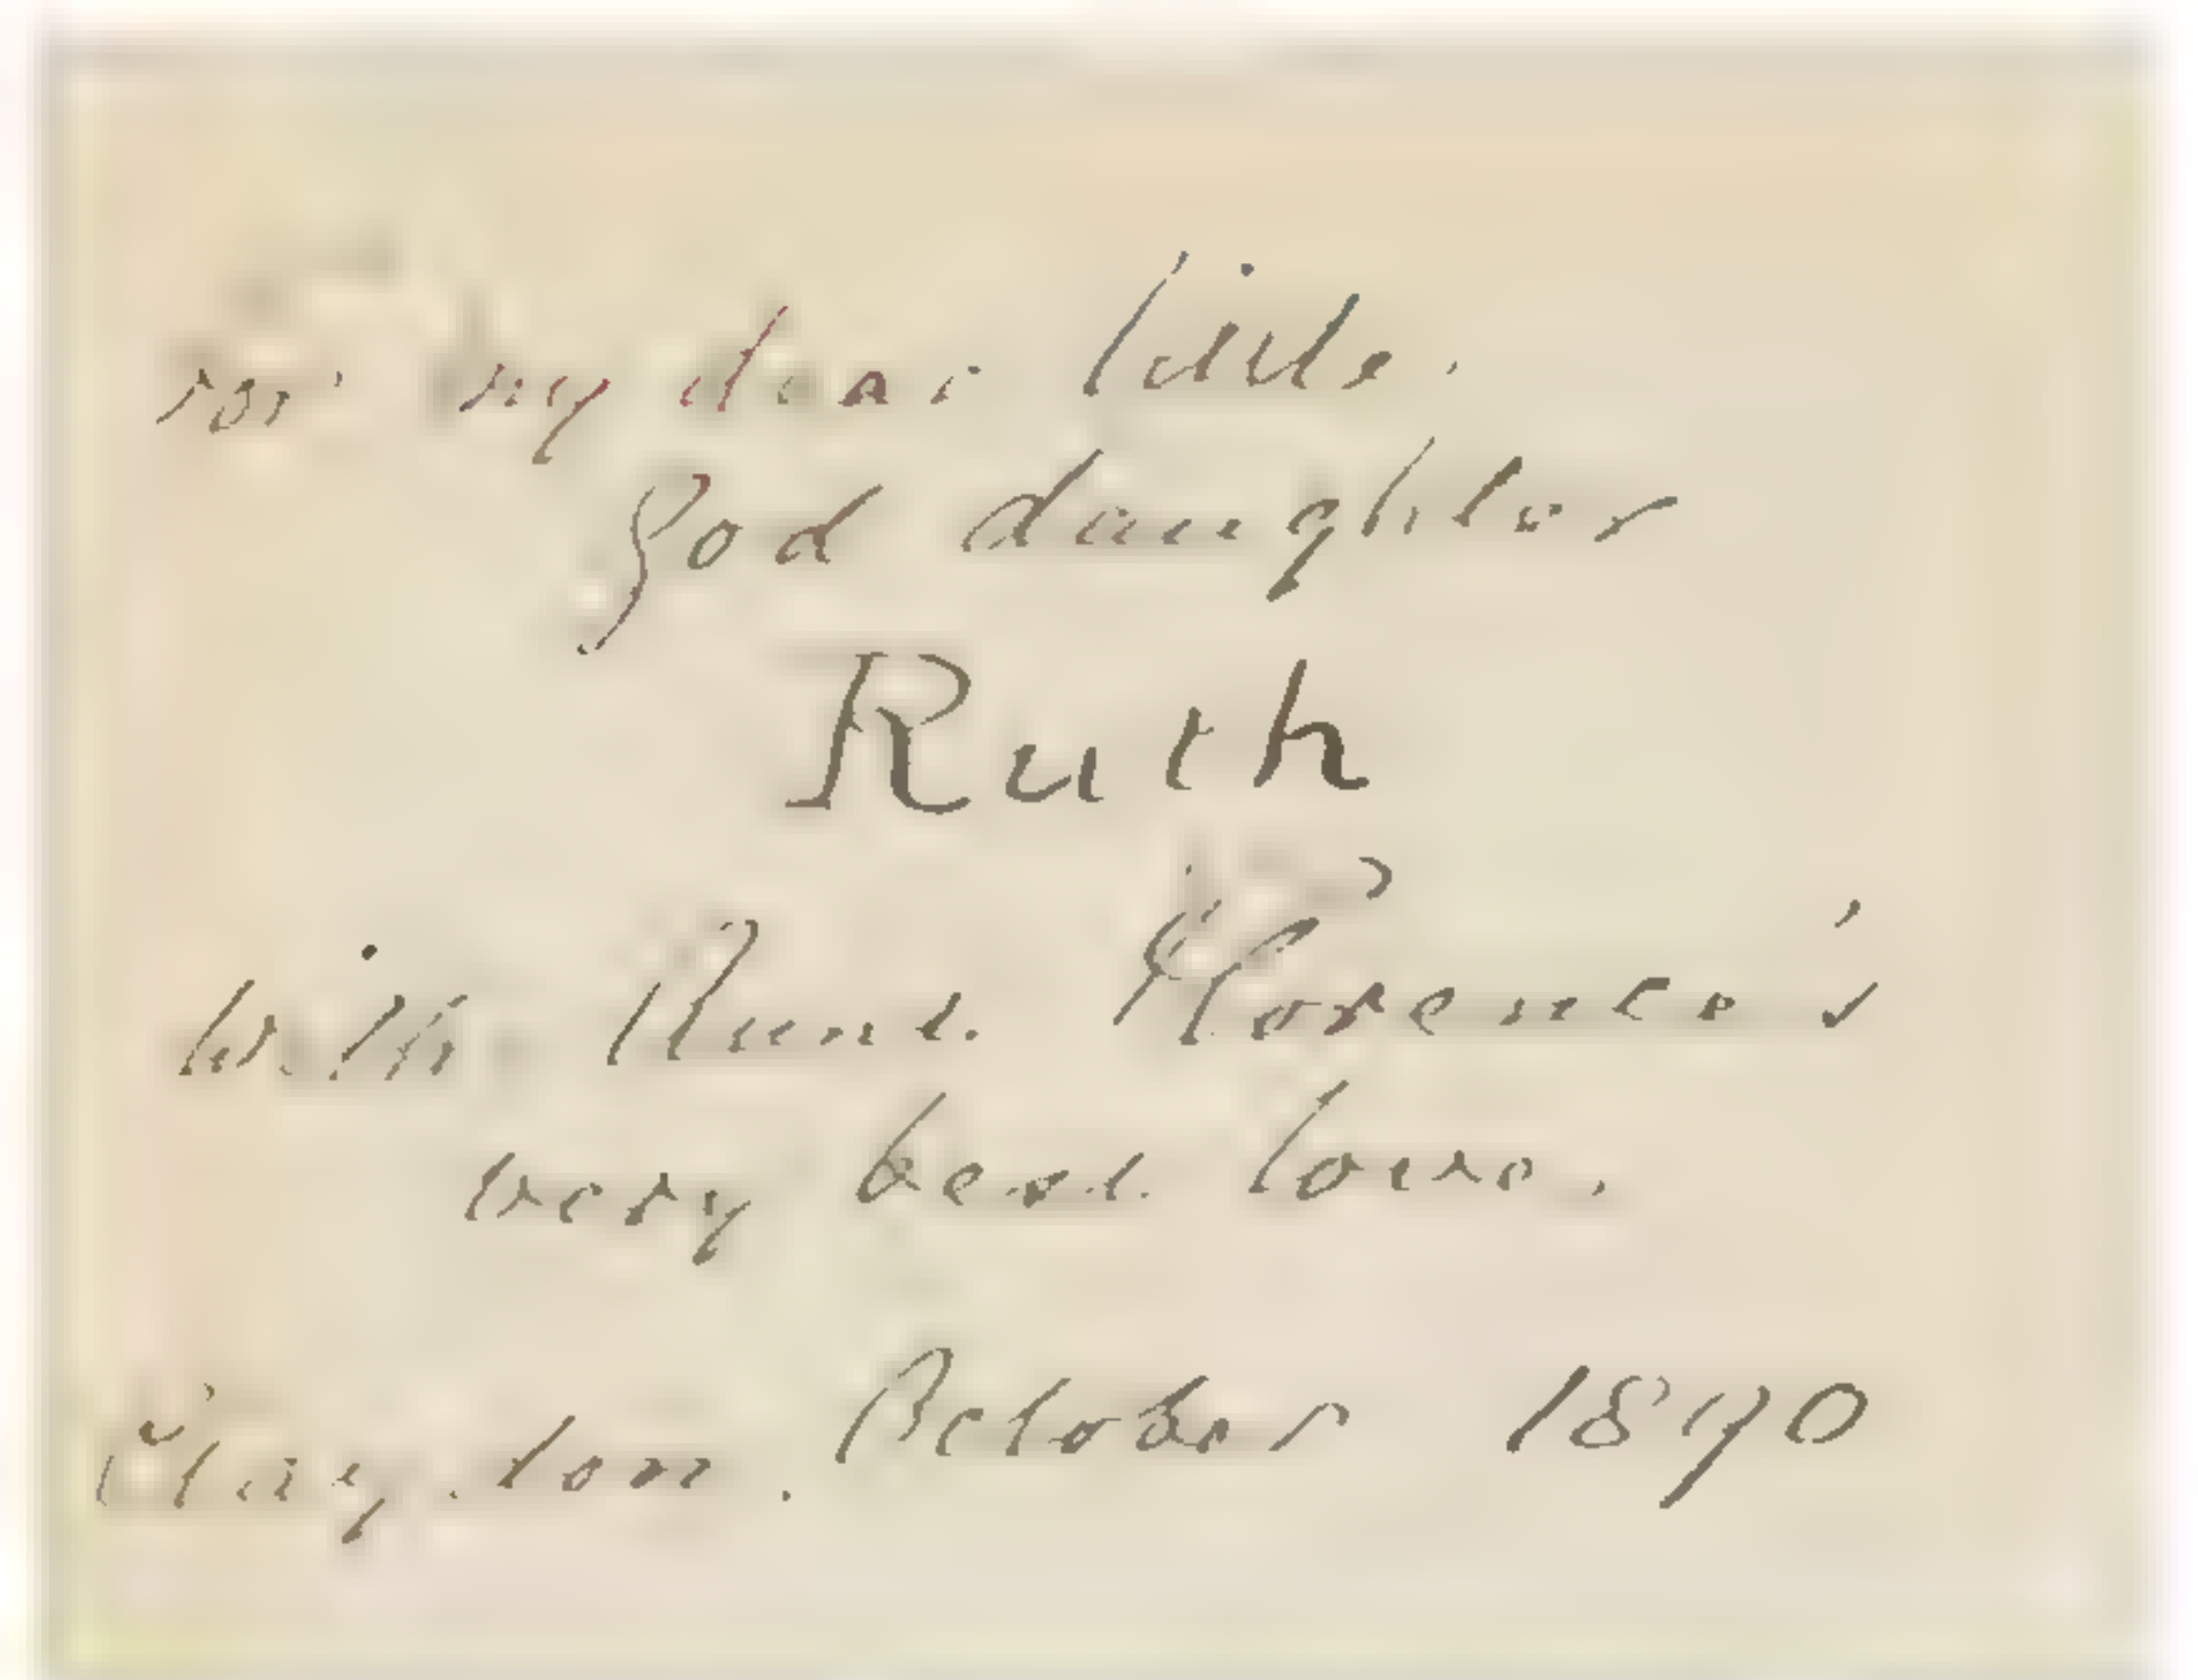 For my dear little
God daughter
Ruth
with Aunt Florence's
very best love.
Claydon. October 1890